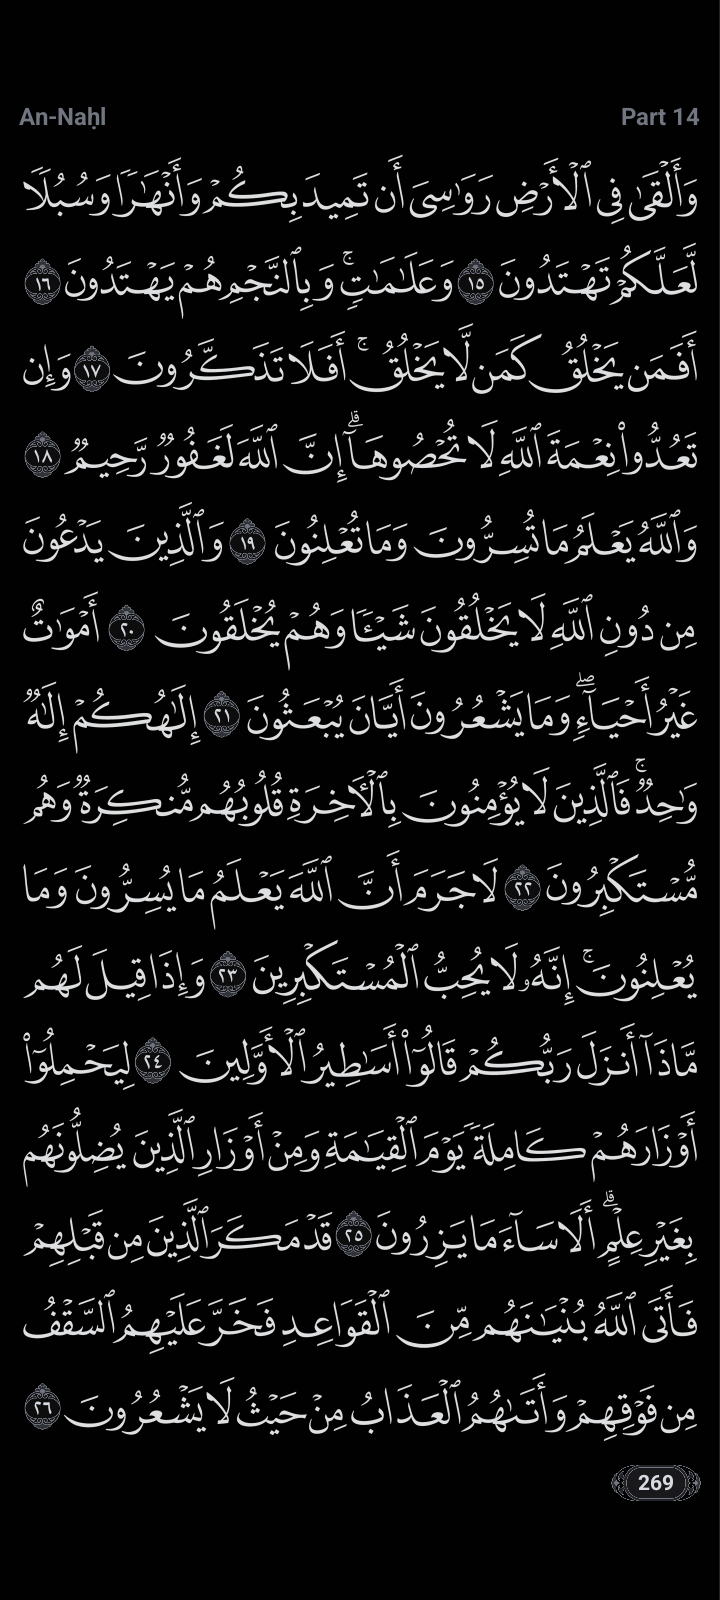 An-Naḥl
Part 14
وَأَلْقَىٰ فِى ٱلْأَرْضِ رَوَٰسِىَ أَن تَمِيدَ بِكُمْ وَأَنْهَـٰرًا وَسُبُلًا
لَّعَلَّكُمْ تَهْتَدُونَ ١٥ وَعَلَـٰمَـٰتٍ ۚ وَبِٱلنَّجْمِ هُمْ يَهْتَدُونَ ١٦
أَفَمَن يَخْلُقُ كَمَن لَّا يَخْلُقُ ۚ أَفَلَا تَذَكَّرُونَ ١٧ وَإِن
تَعُدُّوا۟ نِعْمَةَ ٱللَّهِ لَا تُحْصُوهَآ ۗ إِنَّ ٱللَّهَ لَغَفُورٌ رَّحِيمٌ ١٨
وَٱللَّهُ يَعْلَمُ مَا تُسِرُّونَ وَمَا تُعْلِنُونَ ١٩ وَٱلَّذِينَ يَدْعُونَ
مِن دُونِ ٱللَّهِ لَا يَخْلُقُونَ شَيْـًٔا وَهُمْ يُخْلَقُونَ ٢٠ أَمْوَٰتٌ
غَيْرُ أَحْيَآءٍ ۖ وَمَا يَشْعُرُونَ أَيَّانَ يُبْعَثُونَ ٢١ إِلَـٰهُكُمْ إِلَـٰهٌ
وَٰحِدٌ ۚ فَٱلَّذِينَ لَا يُؤْمِنُونَ بِٱلْـَٔاخِرَةِ قُلُوبُهُم مُّنكِرَةٌ وَهُم
مُّسْتَكْبِرُونَ ٢٢ لَا جَرَمَ أَنَّ ٱللَّهَ يَعْلَمُ مَا يُسِرُّونَ وَمَا
يُعْلِنُونَ ۚ إِنَّهُۥ لَا يُحِبُّ ٱلْمُسْتَكْبِرِينَ ٢٣ وَإِذَا قِيلَ لَهُم
مَّاذَآ أَنزَلَ رَبُّكُمْ قَالُوٓا۟ أَسَـٰطِيرُ ٱلْأَوَّلِينَ ٢٤ لِيَحْمِلُوٓا۟
أَوْزَارَهُمْ كَامِلَةً يَوْمَ ٱلْقِيَـٰمَةِ وَمِنْ أَوْزَارِ ٱلَّذِينَ يُضِلُّونَهُم
بِغَيْرِ عِلْمٍ ۗ أَلَا سَآءَ مَا يَزِرُونَ ٢٥ قَدْ مَكَرَ ٱلَّذِينَ مِن قَبْلِهِمْ
فَأَتَى ٱللَّهُ بُنْيَـٰنَهُم مِّنَ ٱلْقَوَاعِدِ فَخَرَّ عَلَيْهِمُ ٱلسَّقْفُ
مِن فَوْقِهِمْ وَأَتَىٰهُمُ ٱلْعَذَابُ مِنْ حَيْثُ لَا يَشْعُرُونَ ٢٦
269